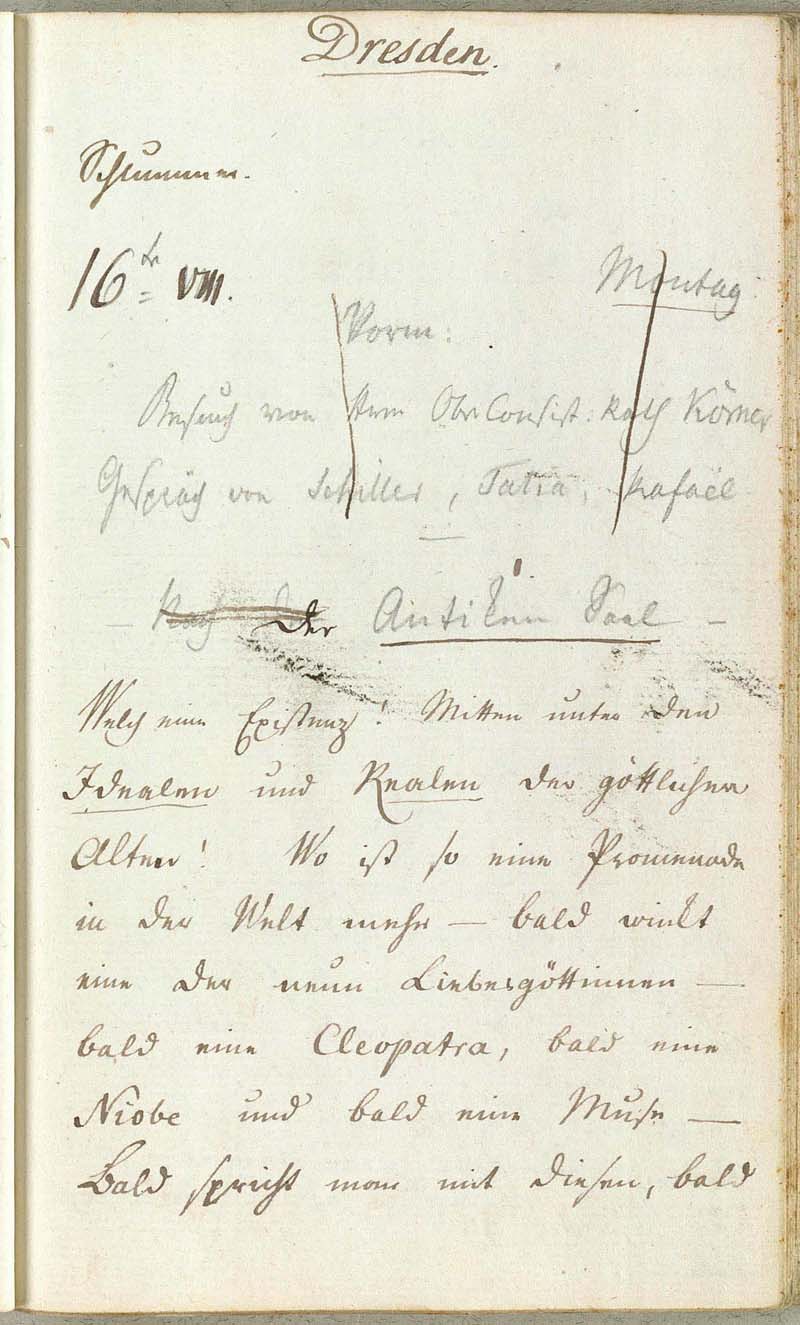 Dresden.
Schlummer.
16te VIII. Montag
Vorm:
Besuch von Hrn ObrConsist: Rath Körner
Gespräch von Schiller, Rafaël
— Nach der Antiken Saal —
Welch eine Existenz! Mitten unter den
Idealen und Realen der göttlichen
Alten! Wo ist so eine Promenade
in der Welt mehr — bald winkt
eine der neun Liebesgöttinnen —
bald eine Cleopatra, bald eine
Niobe und bald eine Muse —
Bald spricht man mit diesen, bald